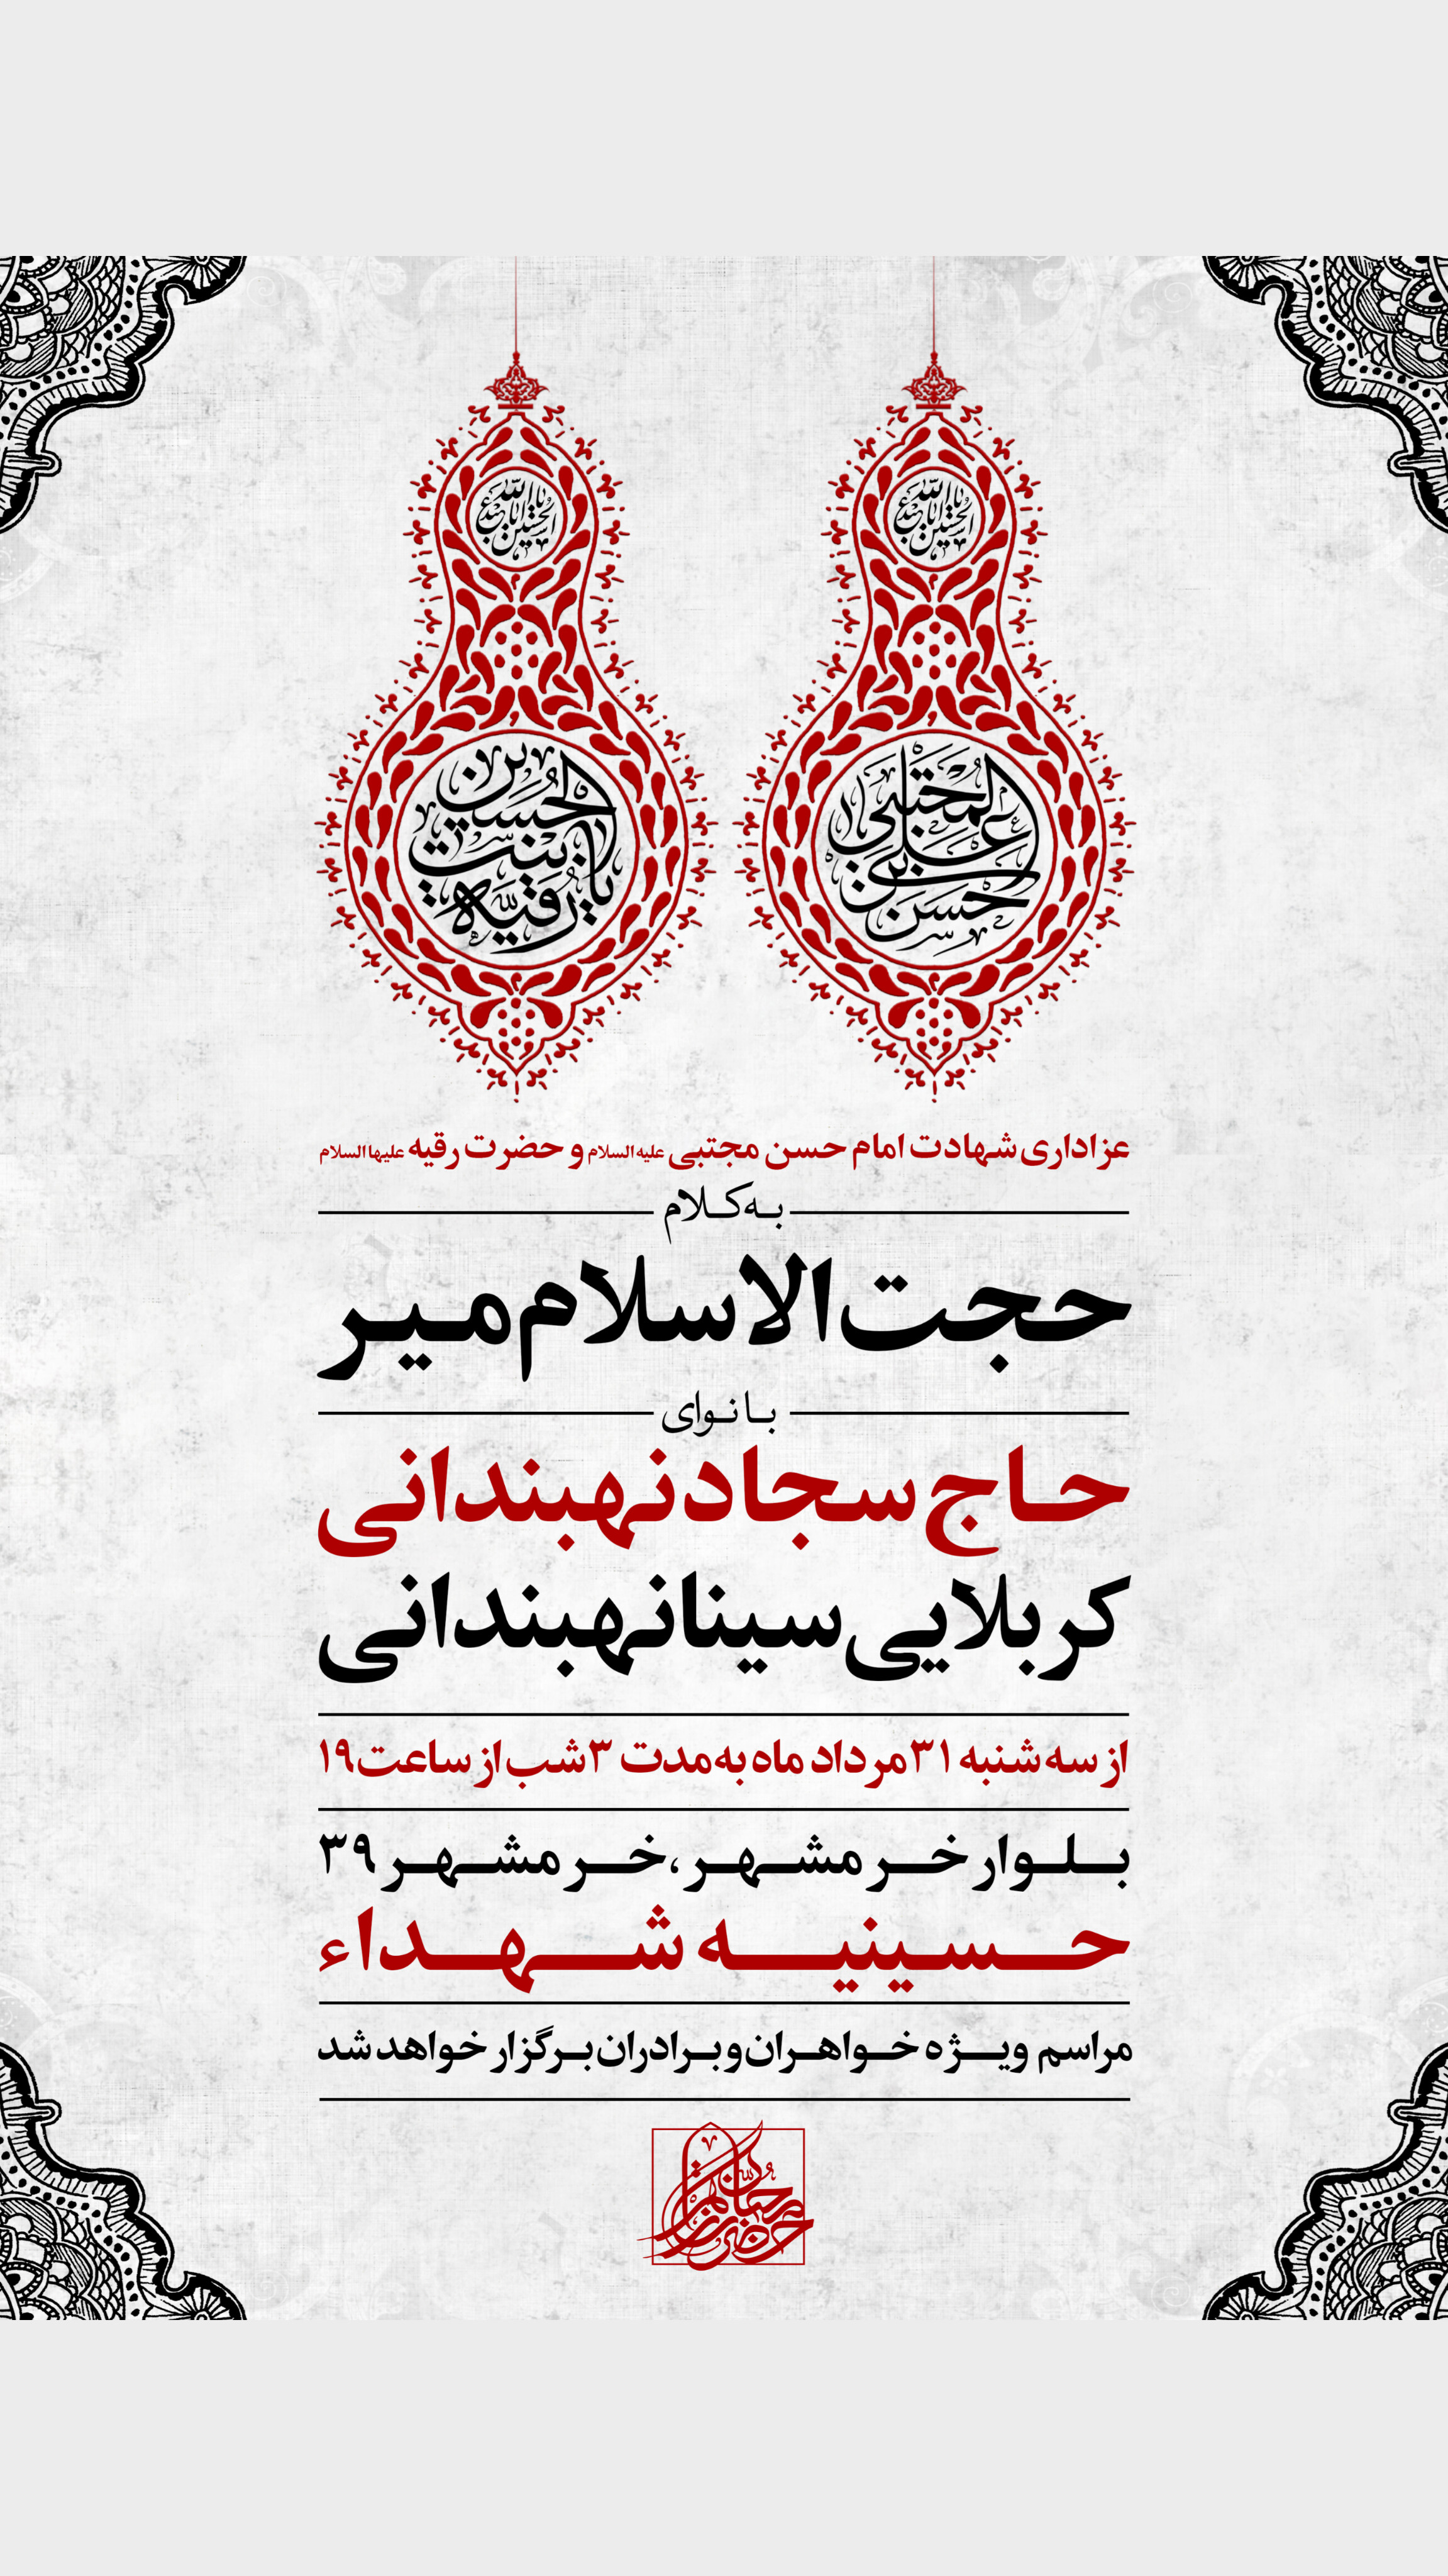 یا اباعبدالله الحسین
یا اباعبدالله الحسین
حسن بن علی المجتبی
یا رقیه بنت الحسین
عزاداری شهادت امام حسن مجتبی علیه السلام و حضرت رقیه علیها السلام
به کلام
حجت الاسلام میر
با نوای
حاج سجاد نهبندانی
کربلایی سینا نهبندانی
از سه شنبه ۳۱ مرداد ماه به مدت ۳ شب از ساعت ۱۹
بلوار خرمشهر، خرمشهر ۳۹
حسینیه شهداء
مراسم ویژه خواهران و برادران برگزار خواهد شد